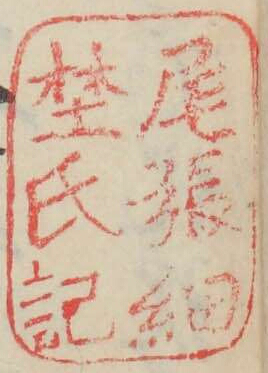 尾張細
埜氏記